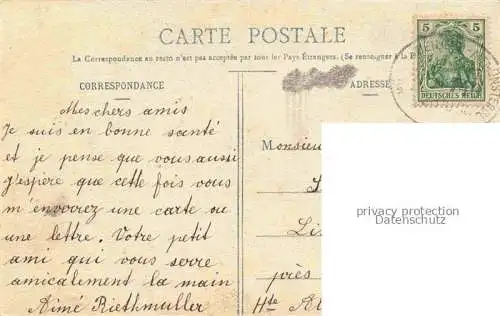 CARTE POSTALE
La Correspondance au recto n'est pas acceptée par tous les Pays Étrangers. (Se renseigner à la P
CORRESPONDANCE
ADRESSE
5 5
DEUTSCHES REICH
Mes chers amis
Je suis en bonne santé
et je pense que vous aussi
J'espère que cette fois vous
m'envorrez une carte ou
une lettre. Votre petit
ami qui vous serre
amicalement la main
Aimé Riethmuller
Monsieu
Lis
près
Hte Al
privacy protection
Datenschutz